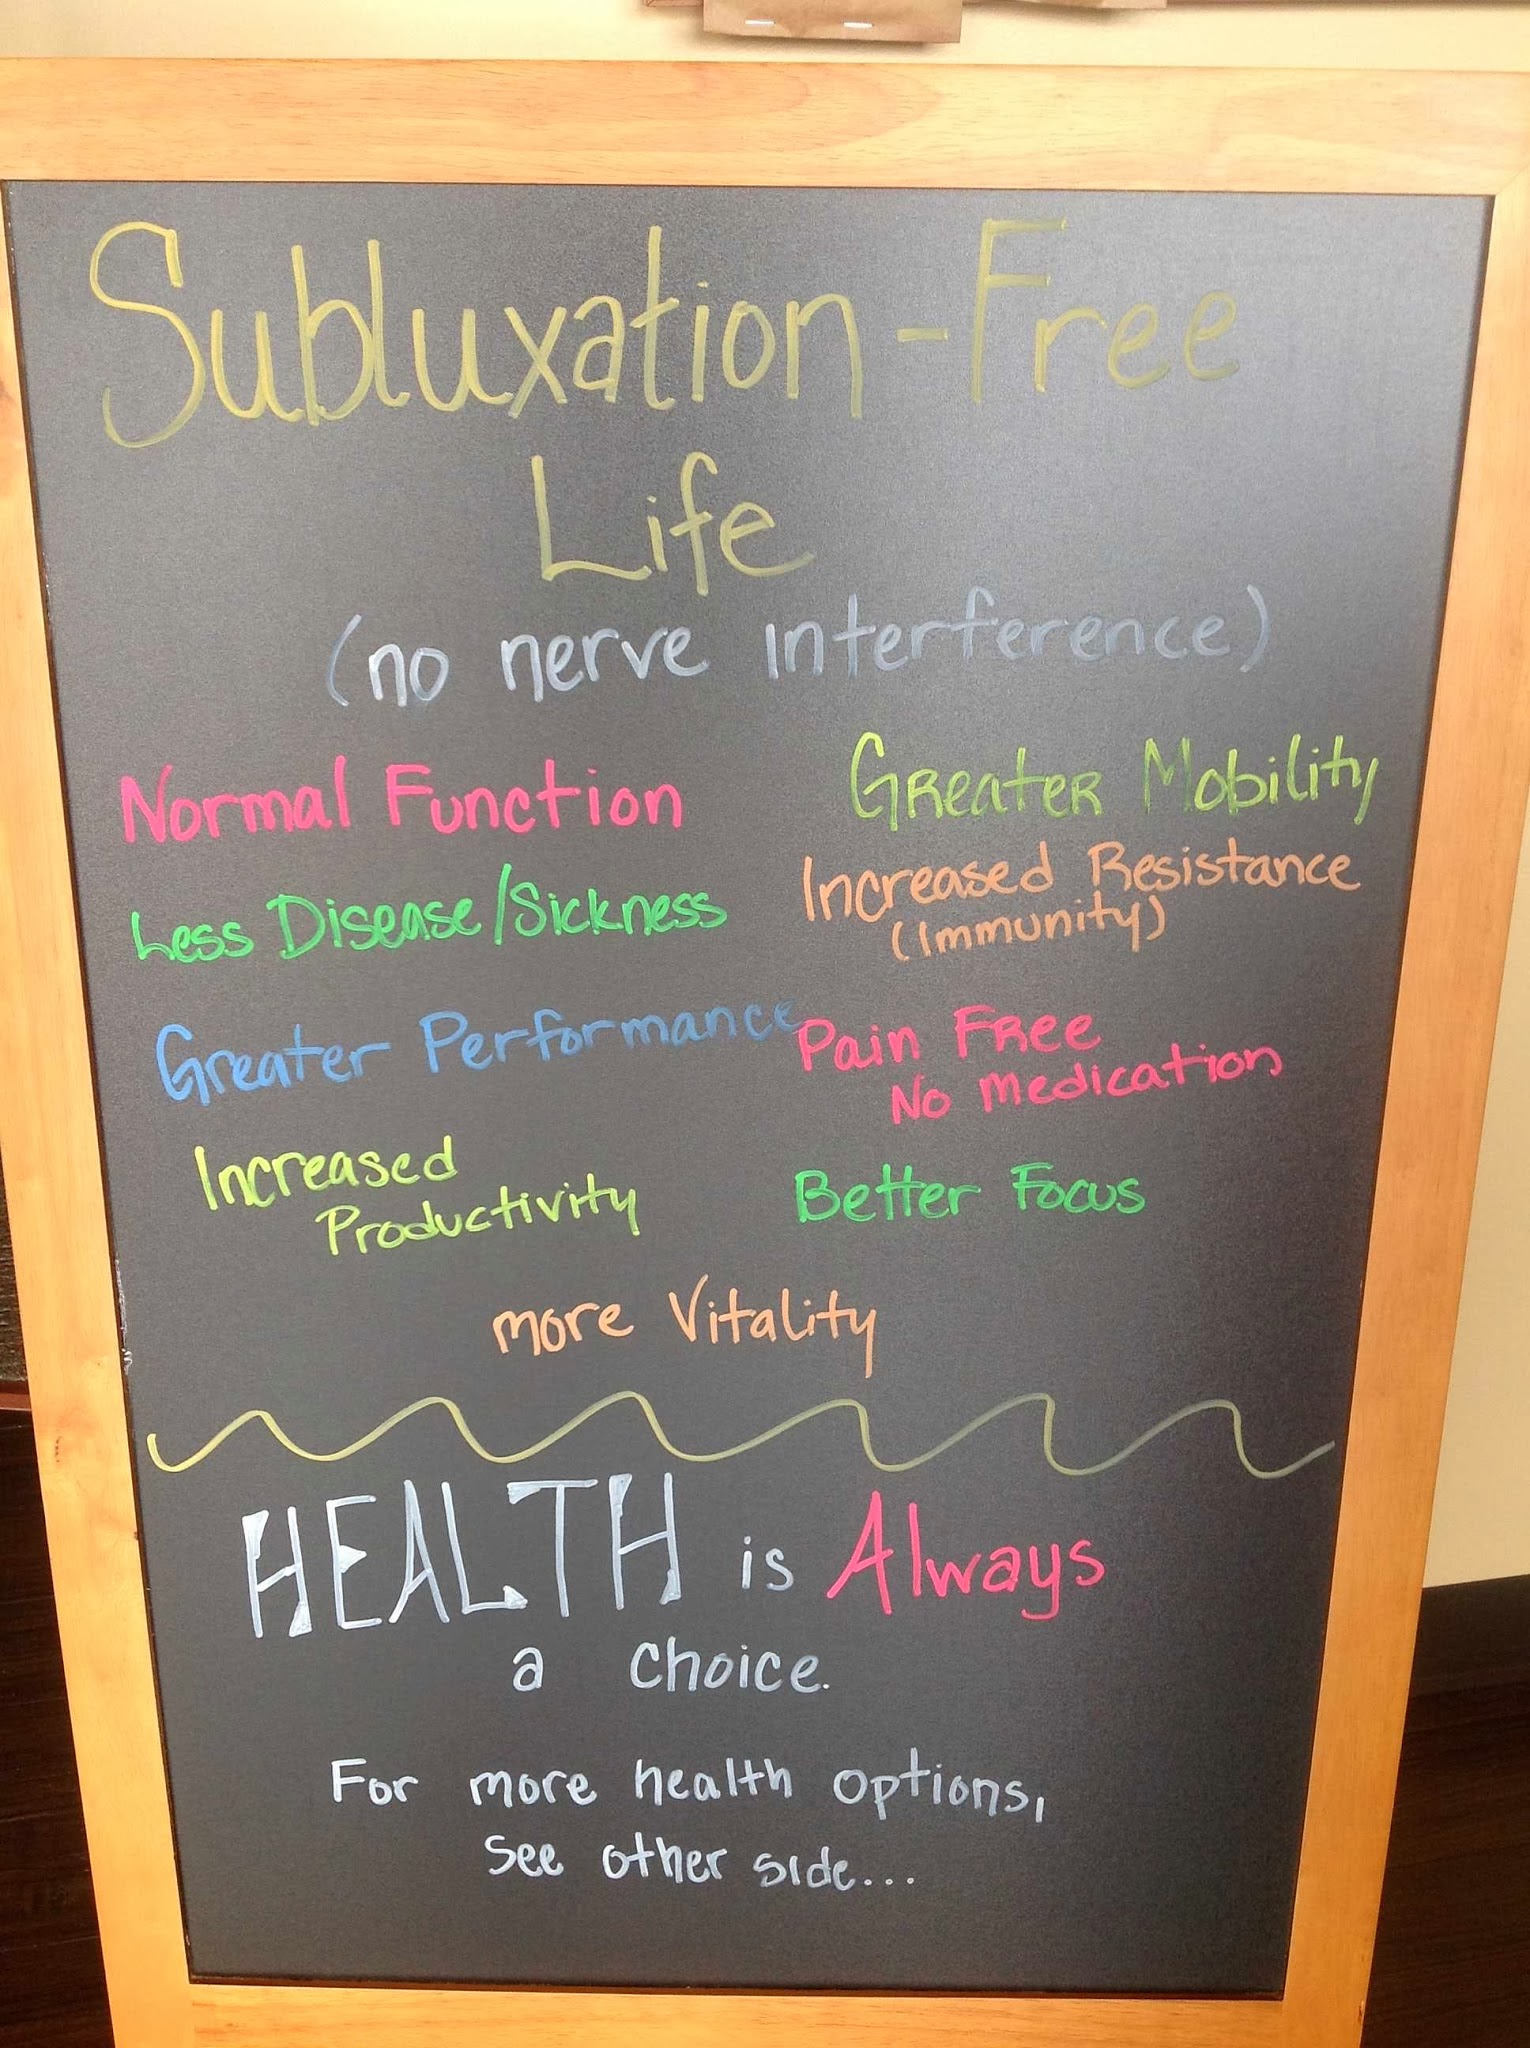 Subluxation-Free
Life
(no nerve interference)
Normal Function
Less Disease/Sickness
Greater Performance
Increased
Productivity
Greater Mobility
Increased Resistance
(Immunity)
Pain Free
No Medication
Better Focus
more Vitality
HEALTH is Always
a choice.
For more health options,
see other side...